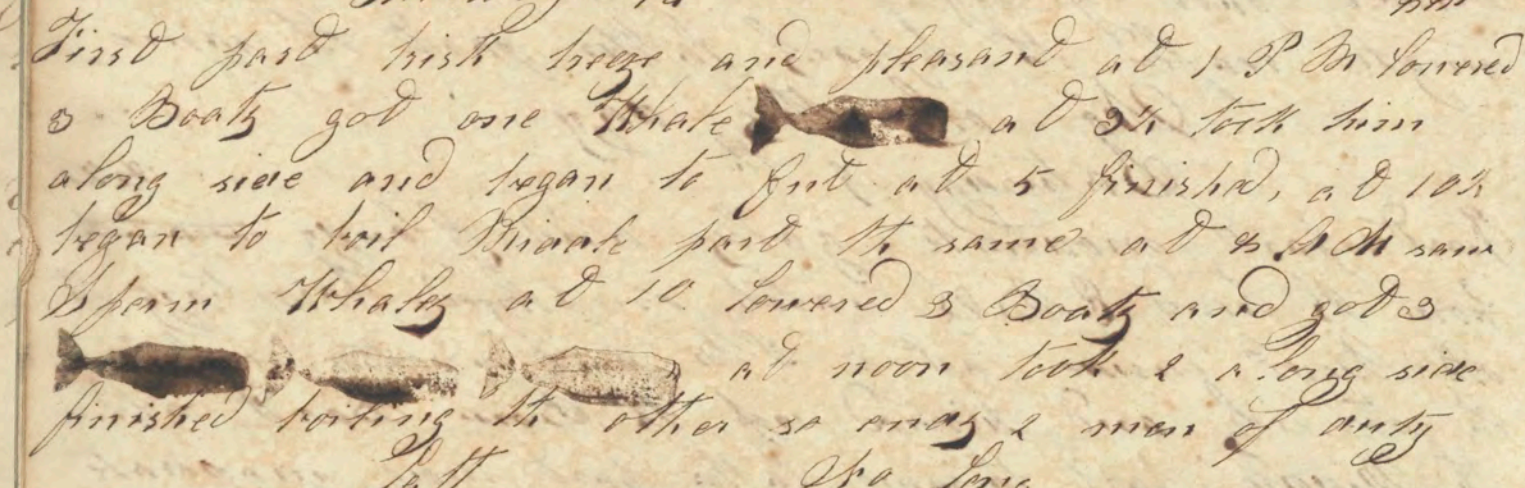 First part brisk breeze and pleasant at 1 P M lowered
3 Boats got one Whale at 3½ took him
along side and began to Cut at 5 finished, at 10½
began to boil Midale part the same at 8 A M saw
Sperm Whales at 10 lowered 3 Boats and got 3
at noon took 2 along side
finished boiling the other so ends 2 men of duty
Latt No Long